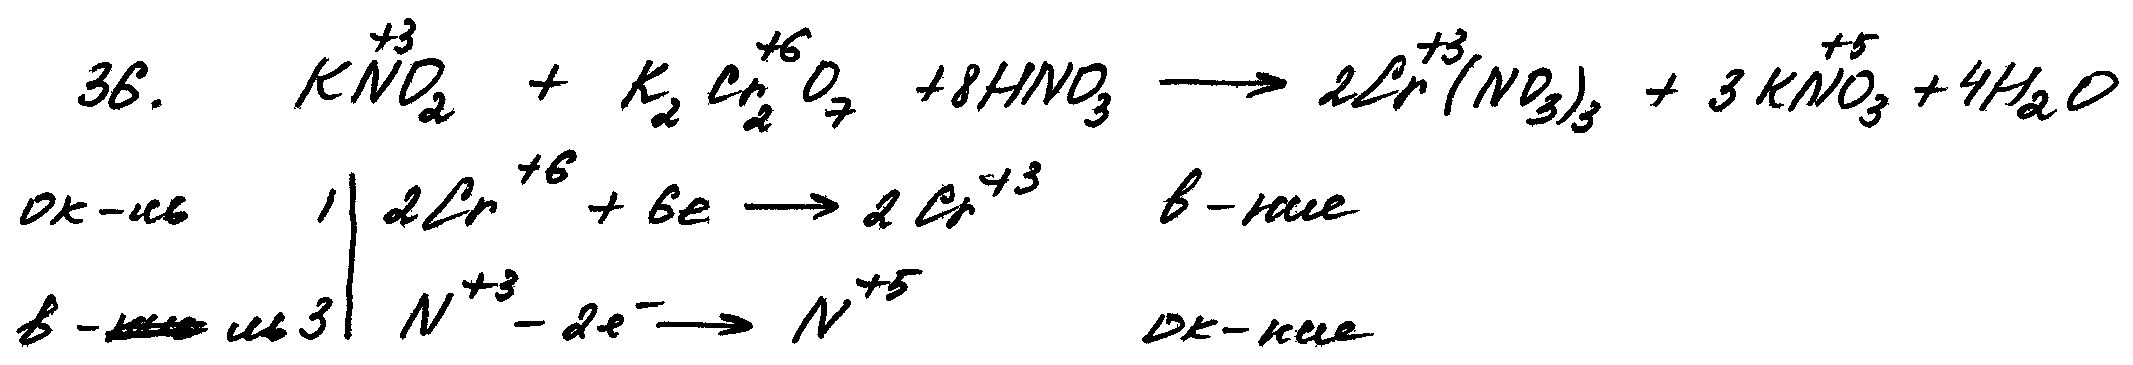 36. KN⁺³O₂ + K₂Cr₂⁺⁶O₇ + 8HNO₃ → 2Cr⁺³(NO₃)₃ + 3KN⁺⁵O₃ + 4H₂O
ок-ль 1 | 2Cr⁺⁶ + 6e → 2Cr⁺³ в-ние
в- ль 3 | N⁺³ - 2e⁻ → N⁺⁵ ок-ние